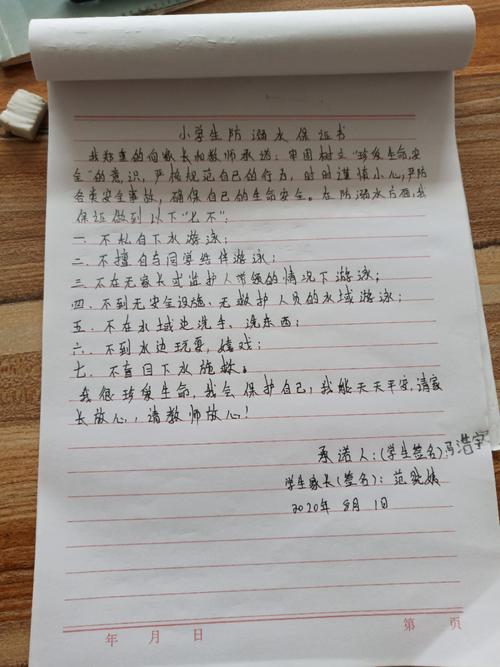 小学生防溺水保证书
我郑重的向家长和教师承诺：牢固树立“珍爱生命，安
全”的意识，严格规范自己的行为，时时谨慎小心，严防
各类安全事故，确保自己的生命安全。在防溺水方面，我
保证做到以下“七不”：
一 不私自下水游泳；
二、不擅自与同学结伴游泳；
三、不在无家长或监护人带领的情况下游泳；
四、不到无安全设施、无救护人员的水域游泳；
五、不在水域边洗手、洗东西；
六、不到水边玩耍，嬉戏；
七、不盲目下水施救。
我很珍爱生命，我会保护自己；我能天天平安，请家
长放心，请教师放心！
承诺人：(学生签名)冯浩宇
学生家长(签名)：范
2020年 8月 1日
年 月 日 第 页